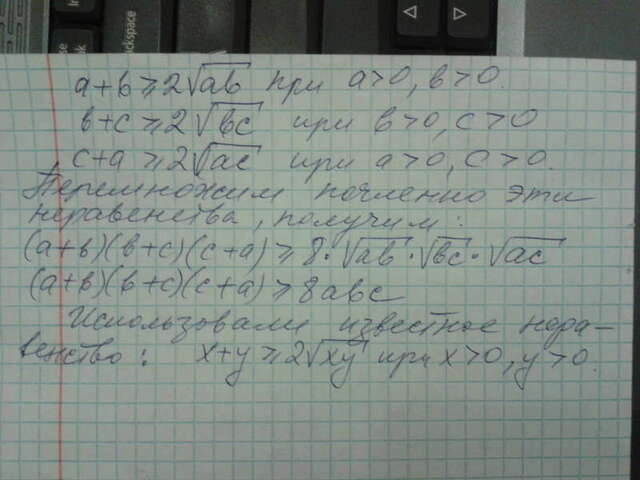 a+b ⩾ 2√ab при a>0, b>0.
b+c ⩾ 2√bc при b>0, c>0
c+a ⩾ 2√ac при a>0, c>0.
Перемножим почленно эти
неравенства, получим:
(a+b)(b+c)(c+a) ⩾ 8·√ab·√bc·√ac
(a+b)(b+c)(c+a) ⩾ 8abc
Использовали известное нера-
венство: x+y ⩾ 2√xy при x>0, y>0.